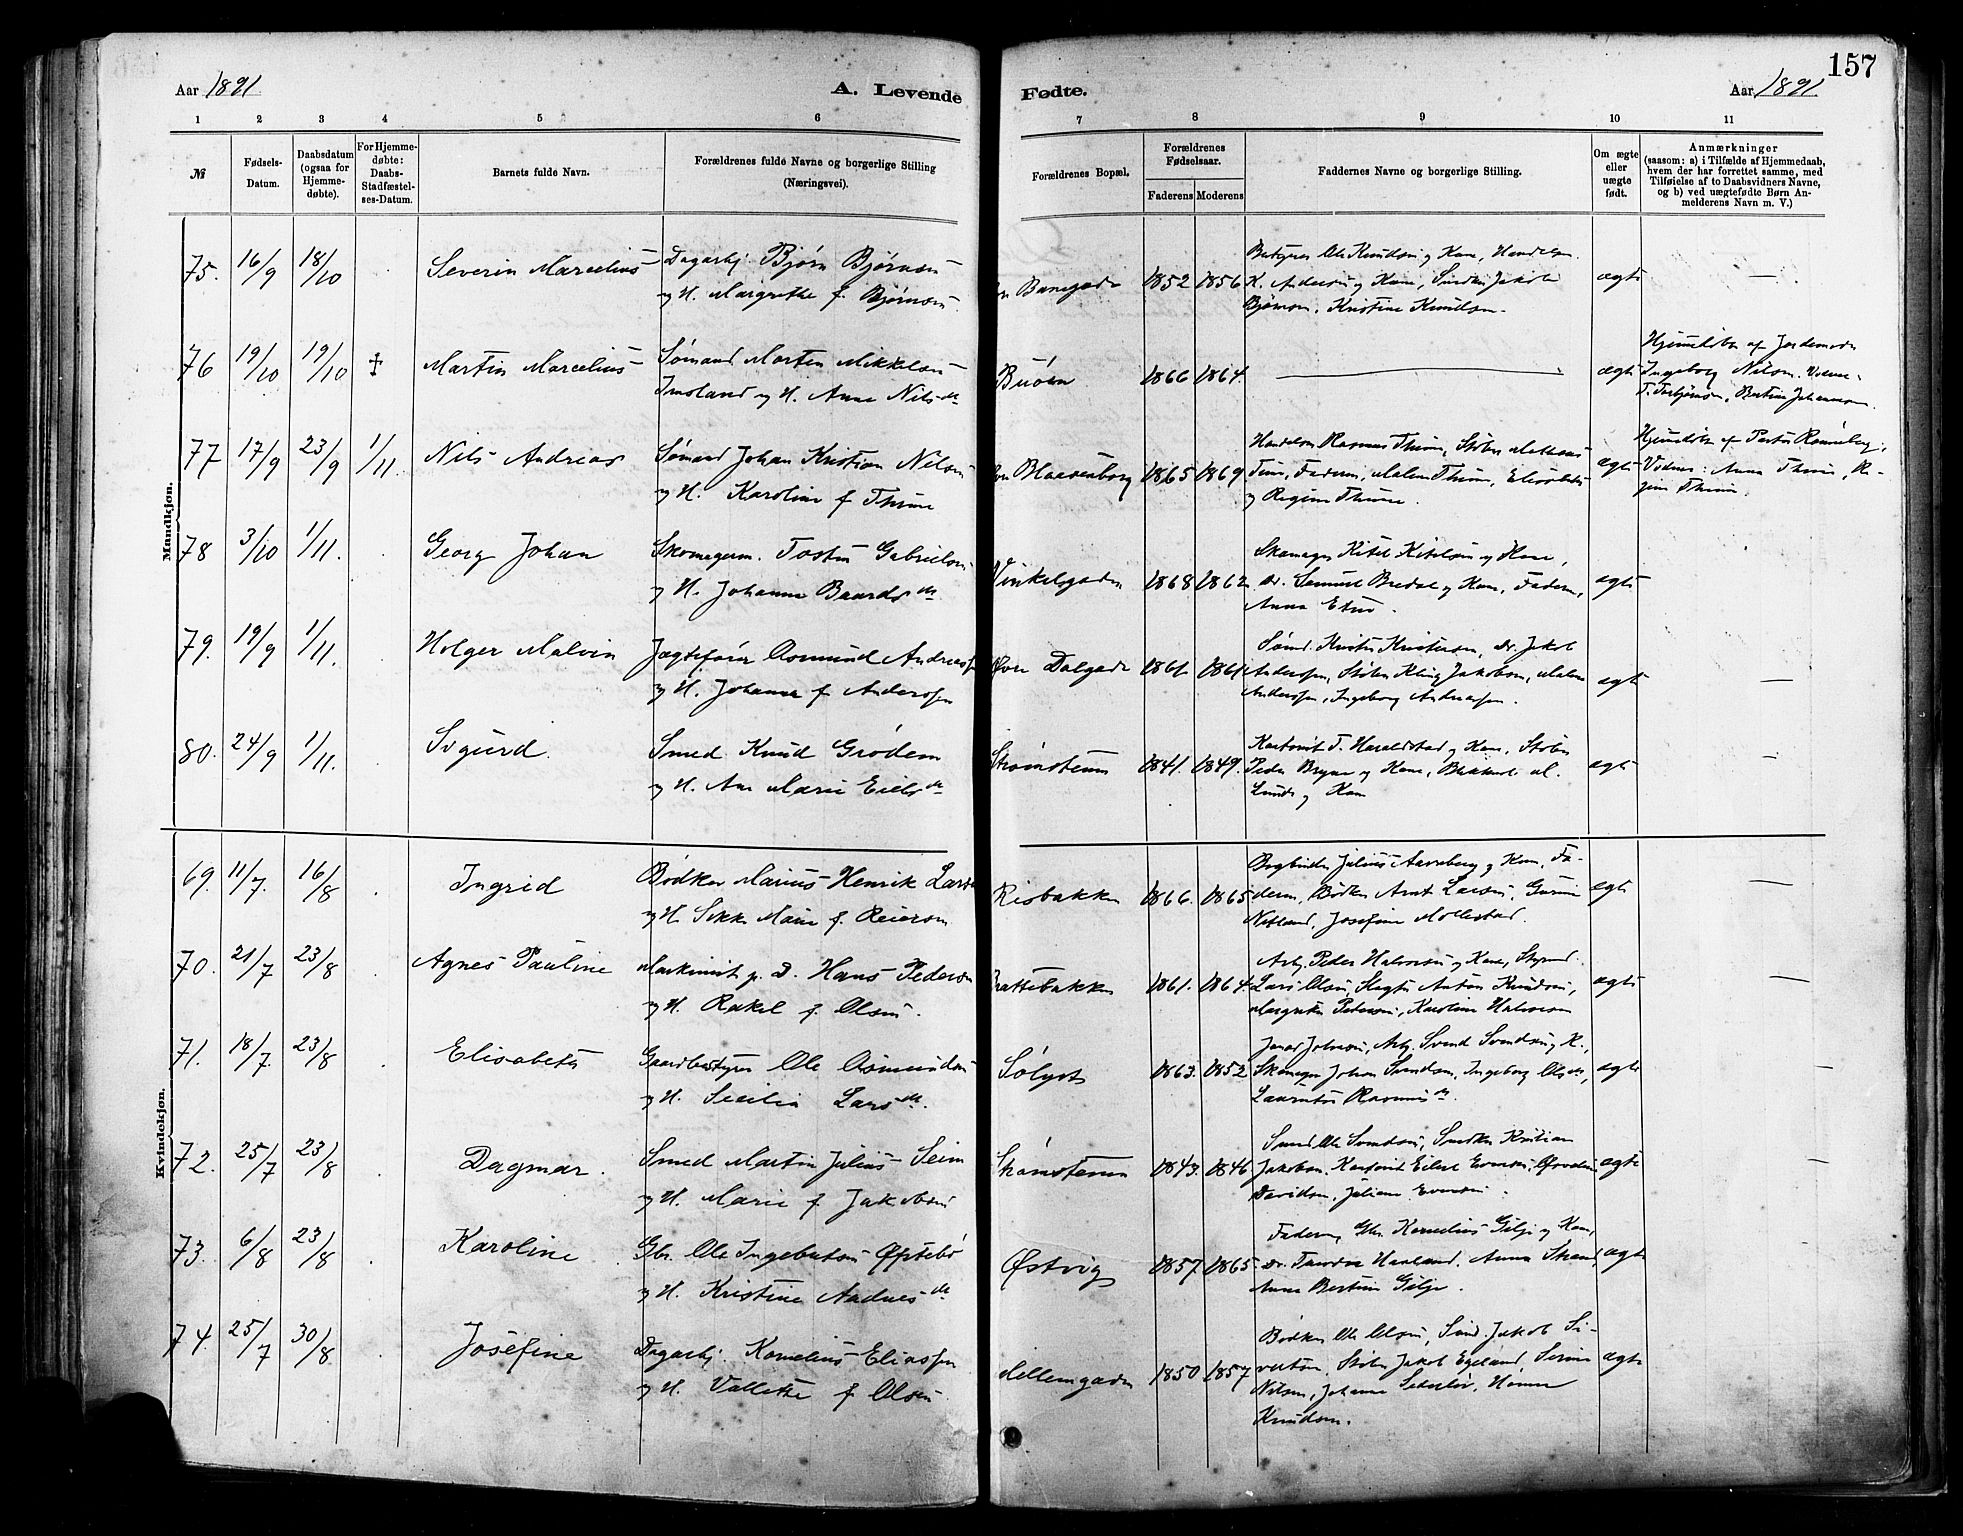 157
Aar 1891
A. Levende
Fødte.
Aar 1891
1 2 3 4 5 6 7 8 9 10 11
№
Fødsels-
Datum.
Daabsdatum
(ogsaa for
Hjemme-
døbte).
For Hjemme-
døbte:
Daabs-
Stadfæstel-
ses-Datum.
Barnets fulde Navn.
Forældrenes fulde Navne og borgerlige Stilling
(Næringsvei).
Forældrenes Bopæl.
Forældrenes
Fødselsaar.
Faderens Moderens
Faddernes Navne og borgerlige Stilling.
Om ægte
eller
uægte
født.
Anmærkninger
(saasom: a) i Tilfælde af Hjemmedaab,
hvem der har forrettet samme, med
Tilføielse af to Daabsvidners Navne,
og b) ved uægtefødte Børn An-
melderens Navn m. V.)
Mandkjøn.
75. 16/9 18/10 Severin Marcelius
Dagarbj Bjørn Bjørnsen
og H. Margrethe f. Bjørnsen
Banegade 1852 1856
Ole Knudsen og Kone,
K. Andersen og Kone, Jakob
Bjørnsen, Kristine Knudsen
ægte —
76 19/10 19/10 ‡ Martin Marcelius
Sømand Morten Mikkelsen
Imsland og H. Anna Nilsdr
Buøen 1866 1864.
ægte
Hjemmedøbt af Jordemoder
Ingeborg Nilsen.
77 17/9 23/9 1/11. Nils Andreas
Sømand Johan Kristian Nilsen
og H. Karoline f Thime
Blaasenborg 1865 1869
Rasmus Thime,
Faderen, Malene Thime, Elisabeth
og Regine Thime
ægte
Hjemmedøbt af Pastor
Vidner: Anna Thime, Re-
gine Thime.
78 3/10 1/11. Georg Johan
Skomagerm. Tosten Gabrielsen
og H. Johanne Baardsdr
Vinkelgaden 1868 1862
Skomager Kitel Kitelsen og Kone,
Dr. Samuel Bredal og Kone, Faderen,
Anna
ægte
79. 19/9 1/11. Holger Malvin
Jægtefører Asmund Andreassen
og H. Johanna f. Anderssen
Øvre Dalgade 1861. 1861
Dr. Jakob
Anderssen, Jakobsen, Malene
Anderssen, Ingeborg Andreassen.
ægte —
80. 24/9 1/11. Sigurd.
Smed Knud Grødem
og H. Ane Marie Eielsdr
Strømsteen 1841. 1849.
T. Haraldstad og Kone,
Peder Bryne og Kone,
Lunde og Kone
ægte —
Kvindekjøn.
69. 11/7. 16/8 Ingrid
Bødker Marius Henrik Larsen
og H Sikke Marie f. Reiersen
Risbakken 1866. 1865
Bogbinder Julius Aareberg og Kone, Fa-
deren, Bødker Arnt Larsen,
Josefine Mollestad
ægte —
70. 21/7 23/8 Agnes Pauline
Maskinist p. D. Hans Pedersen
og H. Rakel f. Olsen.
Brattebakken 1861. 1864.
Arb. Peder Halvorsen og Kone, Styrmd.
Lars Olsen, Anton Knudsen,
Margrethe Pedersen, Karoline Halvorsen
ægte —
71. 18/7. 23/8 Elisabeth
Gaardbestyrer Ole Asmundsen
og H. Secilia Larsdr.
Sølyst 1863. 1852
Arb. Svend Svendsen og K.,
Skomager Johan Svendsen, Ingeborg Olsdr,
ægte —
72. 25/7 23/8 Dagmar.
Smed Martin Julius Seim
og H. Marie f Jakobsen
Strømsteen 1843. 1846
Smed Ole Svendsen, Kristian
Jakobsen.
Davidsen, Juliane
ægte —
73. 6/8 23/8 Karoline
Gbr. Ole Ingebretsen Øfstebø
og H. Kristine Aadnesdr
Østvig 1857. 1865
Faderen, Gbr. Kornelius Gilje og Kone,
Haaland. Anna Strand,
Anna Bertine Gilje.
ægte
74. 25/7 30/8 Josefine
Dagarbj. Kornelius Eliassen
og H. Vallette f. Olsen
Mellemgaden 1850 1857
Bødker Ole Olsen, Jakob Si-
vertsen, Jakob Egeland, Serine
Nilsen, Johanne
Knudsen.
ægte